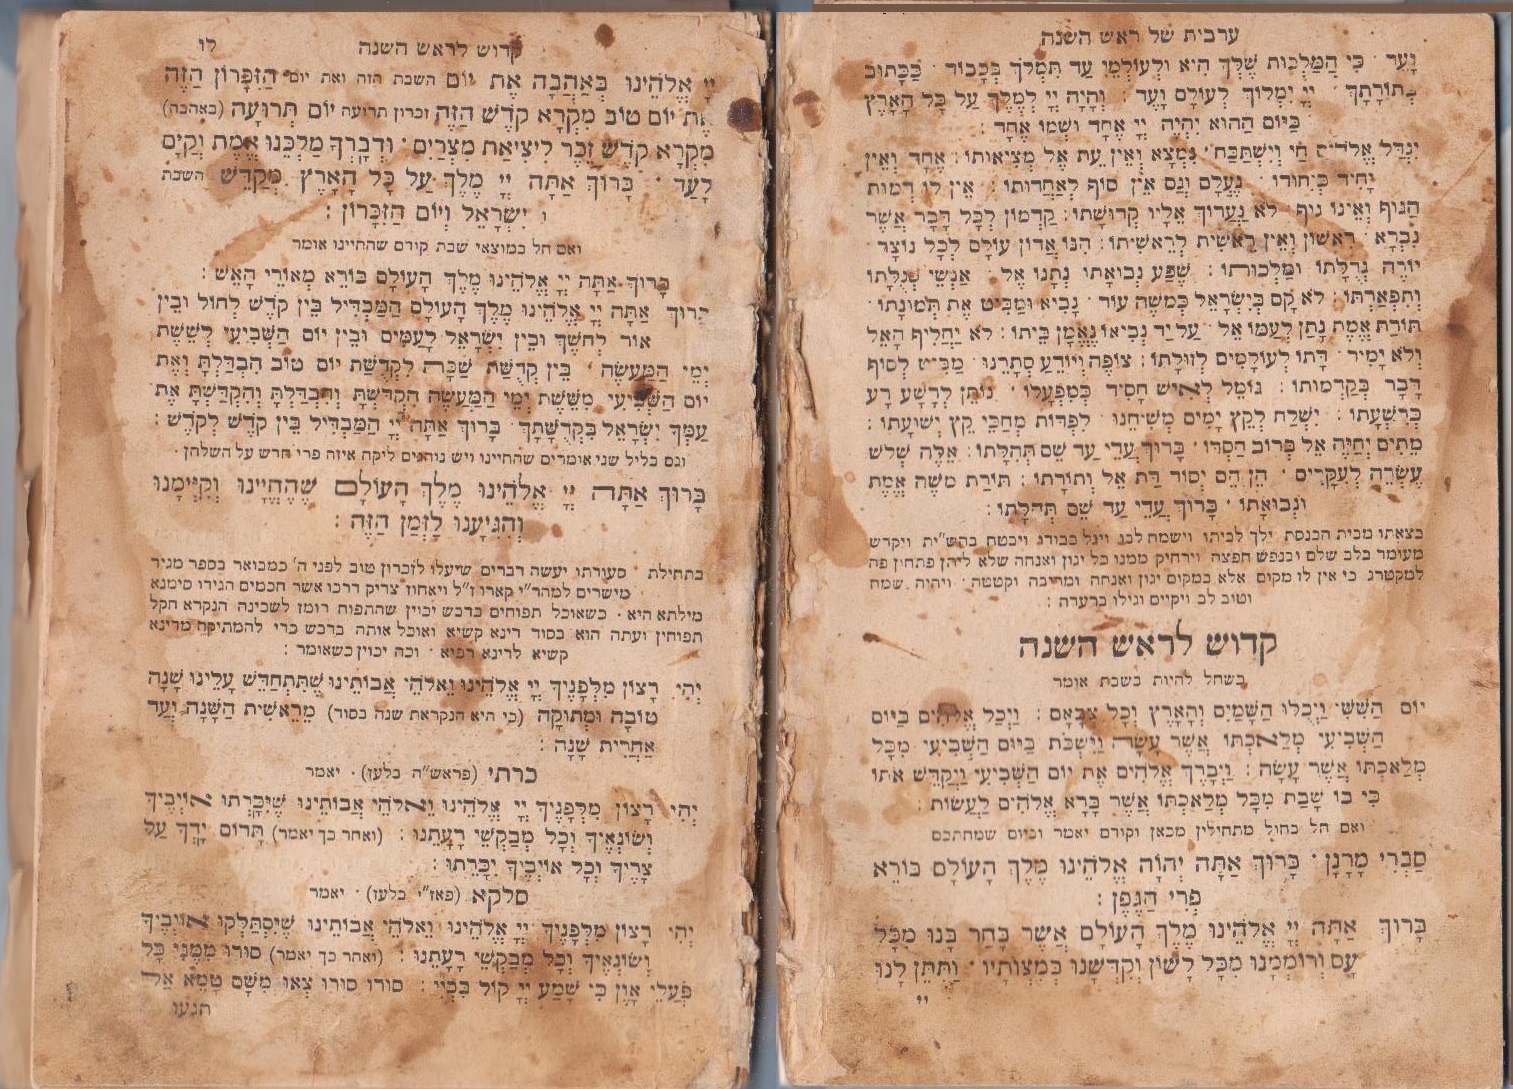 ערבית של ראש השנה
וָעֶד · כִּי הַמַּלְכוּת שֶׁלְּךָ הִיא וּלְעוֹלְמֵי עַד תִּמְלֹךְ בְּכָבוֹד · כַּכָּתוּב
בְּתוֹרָתֶךָ · יְיָ יִמְלוֹךְ לְעוֹלָם וָעֶד : וְהָיָה יְיָ לְמֶלֶךְ עַל כָּל הָאָרֶץ
בַּיּוֹם הַהוּא יִהְיֶה יְיָ אֶחָד וּשְׁמוֹ אֶחָד :
יִגְדַּל אֱלֹהִים חַי וְיִשְׁתַּבַּח · נִמְצָא וְאֵין עֵת אֶל מְצִיאוּתוֹ : אֶחָד וְאֵין
יָחִיד כְּיִחוּדוֹ · נֶעְלָם וְגַם אֵין סוֹף לְאַחְדוּתוֹ : אֵין לוֹ דְמוּת
הַגּוּף וְאֵינוֹ גוּף · לֹא נַעֲרוֹךְ אֵלָיו קְדוּשָּׁתוֹ : קַדְמוֹן לְכָל דָּבָר אֲשֶׁר
נִבְרָא · רִאשׁוֹן וְאֵין רֵאשִׁית לְרֵאשִׁיתוֹ : הִנּוֹ אֲדוֹן עוֹלָם לְכָל נוֹצָר ·
יוֹרֶה גְדֻלָּתוֹ וּמַלְכוּתוֹ : שֶׁפַע נְבוּאָתוֹ נְתָנוֹ אֶל · אַנְשֵׁי סְגֻלָּתוֹ
וְתִפְאַרְתּוֹ : לֹא קָם בְּיִשְׂרָאֵל כְּמשֶׁה עוֹד · נָבִיא וּמַבִּיט אֶת תְּמוּנָתוֹ ·
תּוֹרַת אֱמֶת נָתַן לְעַמּוֹ אֵל · עַל יַד נְבִיאוֹ נֶאֱמַן בֵּיתוֹ : לֹא יַחֲלִיף הָאֵל
וְלֹא יָמִיר · דָּתוֹ לְעוֹלָמִים לְזוּלָתוֹ : צוֹפֶה וְיוֹדֵעַ סְתָרֵנוּ · מַבִּיט לְסוֹף
דָּבָר בְּקַדְמוּתוֹ : גּוֹמֵל לְאִישׁ חָסִיד כְּמִפְעָלוֹ · נוֹתֵן לְרָשָׁע רָע
כְּרִשְׁעָתוֹ : יִשְׁלַח לְקֵץ יָמִים מְשִׁיחֵנוּ · לִפְדּוֹת מְחַכֵּי קֵץ יְשׁוּעָתוֹ :
מֵתִים יְחַיֶּה אֵל בְּרוֹב חַסְדּוֹ · בָּרוּךְ עֲדֵי עַד שֵׁם תְּהִלָּתוֹ : אֵלֶּה שְׁלֹשׁ
עֶשְׂרֵה לְעִקָּרִים · הֵן הֵם יְסוֹד דַּת אֵל וְתוֹרָתוֹ : תּוֹרַת משֶׁה אֱמֶת
וּנְבוּאָתוֹ · בָּרוּךְ עֲדֵי עַד שֵׁם תְּהִלָּתוֹ :
בצאתו מבית הכנסת ילך לביתו וישמח לבו ויגל כבודו ויבטח בהש"ית ויקדש
מעומד בלב שלם ובנפש חפצה וירחיק ממנו כל יגון ואנחה שלא ליתן פתחון פה
למקטרג כי אין לו מקום אלא במקום יגון ואנחה ומריבה וקטטה · ויהיה שמח
וטוב לב ויקיים וגילו ברעדה :
קדוש לראש השנה
כשחל להיות בשבת אומר
יוֹם הַשִּׁשִּׁי וַיְכֻלּוּ הַשָּׁמַיִם וְהָאָרֶץ וְכָל צְבָאָם : וַיְכַל אֱלֹהִים בַּיּוֹם
הַשְּׁבִיעִי מְלַאכְתּוֹ אֲשֶׁר עָשָׂה וַיִּשְׁבֹּת בַּיּוֹם הַשְּׁבִיעִי מִכָּל
מְלַאכְתּוֹ אֲשֶׁר עָשָׂה : וַיְבָרֶךְ אֱלֹהִים אֶת יוֹם הַשְּׁבִיעִי וַיְקַדֵּשׁ אֹתוֹ
כִּי בוֹ שָׁבַת מִכָּל מְלַאכְתּוֹ אֲשֶׁר בָּרָא אֱלֹהִים לַעֲשׂוֹת :
ואם חל בחול מתחילין מכאן וקודם יאמר וביום שמחתכם
סַבְרִי מָרָנָן · בָּרוּךְ אַתָּה יְהוָֹה אֱלֹהֵינוּ מֶלֶךְ הָעוֹלָם בּוֹרֵא
פְּרִי הַגֶּפֶן :
בָּרוּךְ אַתָּה יְיָ אֱלֹהֵינוּ מֶלֶךְ הָעוֹלָם אֲשֶׁר בָּחַר בָּנוּ מִכָּל
עָם וְרוֹמְמָנוּ מִכָּל לָשׁוֹן וְקִדְּשָׁנוּ בְּמִצְוֹתָיו · וַתִּתֶּן לָנוּ
יי
קדוש לראש השנה לו
יְיָ אֱלֹהֵינוּ בְּאַהֲבָה אֶת יוֹם השבת הזה ואת יום הַזִּכָּרוֹן הַזֶּה
אֶת יוֹם טוֹב מִקְרָא קֹדֶשׁ הַזֶּה זכרון תרועה יוֹם תְּרוּעָה (באהבה)
מִקְרָא קֹדֶשׁ זֵכֶר לִיצִיאַת מִצְרַיִם · וּדְבָרְךָ מַלְכֵּנוּ אֱמֶת וְקַיָּם
לָעַד · בָּרוּךְ אַתָּה יְיָ מֶלֶךְ עַל כָּל הָאָרֶץ מְקַדֵּשׁ השבת
ו יִשְׂרָאֵל וְיוֹם הַזִּכָּרוֹן :
ואם חל במוצאי שבת קודם שהחיינו אומר
בָּרוּךְ אַתָּה יְיָ אֱלֹהֵינוּ מֶלֶךְ הָעוֹלָם בּוֹרֵא מְאוֹרֵי הָאֵשׁ :
בָּרוּךְ אַתָּה יְיָ אֱלֹהֵינוּ מֶלֶךְ הָעוֹלָם הַמַּבְדִּיל בֵּין קֹדֶשׁ לְחוֹל וּבֵין
אוֹר לְחשֶׁךְ וּבֵין יִשְׂרָאֵל לָעַמִּים וּבֵין יוֹם הַשְּׁבִיעִי לְשֵׁשֶׁת
יְמֵי הַמַּעֲשֶׂה · בֵּין קְדֻשַּׁת שַׁבָּת לִקְדֻשַּׁת יוֹם טוֹב הִבְדַּלְתָּ וְאֶת
יוֹם הַשְּׁבִיעִי מִשֵּׁשֶׁת יְמֵי הַמַּעֲשֶׂה הִקְדַּשְׁתָּ וְהִבְדַּלְתָּ וְהִקְדַּשְׁתָּ אֶת
עַמְּךָ יִשְׂרָאֵל בִּקְדֻשָּׁתָךְ · בָּרוּךְ אַתָּה יְיָ הַמַּבְדִּיל בֵּין קֹדֶשׁ לְקֹדֶשׁ :
וגם בליל שני אומרים שהחיינו ויש נוהגים ליקח איזה פרי חדש על השלחן ·
בָּרוּךְ אַתָּה יְיָ אֱלֹהֵינוּ מֶלֶךְ הָעוֹלָם שֶׁהֶחֱיָינוּ וְקִיְּימָנוּ
וְהִגִּיעָנוּ לַזְּמַן הַזֶּה :
בתחילת סעודתו יעשה דברים שיעלו לזכרון טוב לפני ה' כמבואר בספר מגיד
מישרים למהר"י קארו ז"ל ויאחוז צדיק דרכו אשר חכמים הגידו סימנא
מילתא היא · כשאוכל תפוחים בדבש יכוין שהתפוח רומז לשכינה הנקרא חקל
תפוחין ועתה הוא בסוד דינא קשיא ואוכל אותה בדבש כדי להמתיקה מדינא
קשיא לדינא רפיא · וכה יכוין כשאומר :
יְהִי רָצוֹן מִלְּפָנֶיךָ יְיָ אֱלֹהֵינוּ וֵאלֹהֵי אֲבוֹתֵינוּ שֶׁתִּתְחַדֵּשׁ עָלֵינוּ שָׁנָה
טוֹבָה וּמְתוּקָה (כי היא הנקראת שנה בסוד) מֵרֵאשִׁית הַשָּׁנָה וְעַד
אַחֲרִית שָׁנָה :
כרתי (פראש"ה בלעז) · יאמר
יְהִי רָצוֹן מִלְּפָנֶיךָ יְיָ אֱלֹהֵינוּ וֵאלֹהֵי אֲבוֹתֵינוּ שֶׁיִּכָּרְתוּ אוֹיְבֶיךָ
וְשׂוֹנְאֶיךָ וְכָל מְבַקְשֵׁי רָעָתֵנוּ : (ואחר כך יאמר) תָּרוֹם יָדְךָ עַל
צָרֶיךָ וְכָל אוֹיְבֶיךָ יִכָּרֵתוּ :
סלקא (פאז"י בלעז) · יאמר
יְהִי רָצוֹן מִלְּפָנֶיךָ יְיָ אֱלֹהֵינוּ וֵאלֹהֵי אֲבוֹתֵינוּ שֶׁיִּסְתַּלְּקוּ אוֹיְבֶיךָ
וְשׂוֹנְאֶיךָ וְכָל מְבַקְשֵׁי רָעָתֵנוּ : (ואחר כך יאמר) סוּרוּ מִמֶּנִּי כָּל
פֹּעֲלֵי אָוֶן כִּי שָׁמַע יְיָ קוֹל בִּכְיִי : סוּרוּ סוּרוּ צְאוּ מִשָּׁם טָמֵא אַל
תגעו